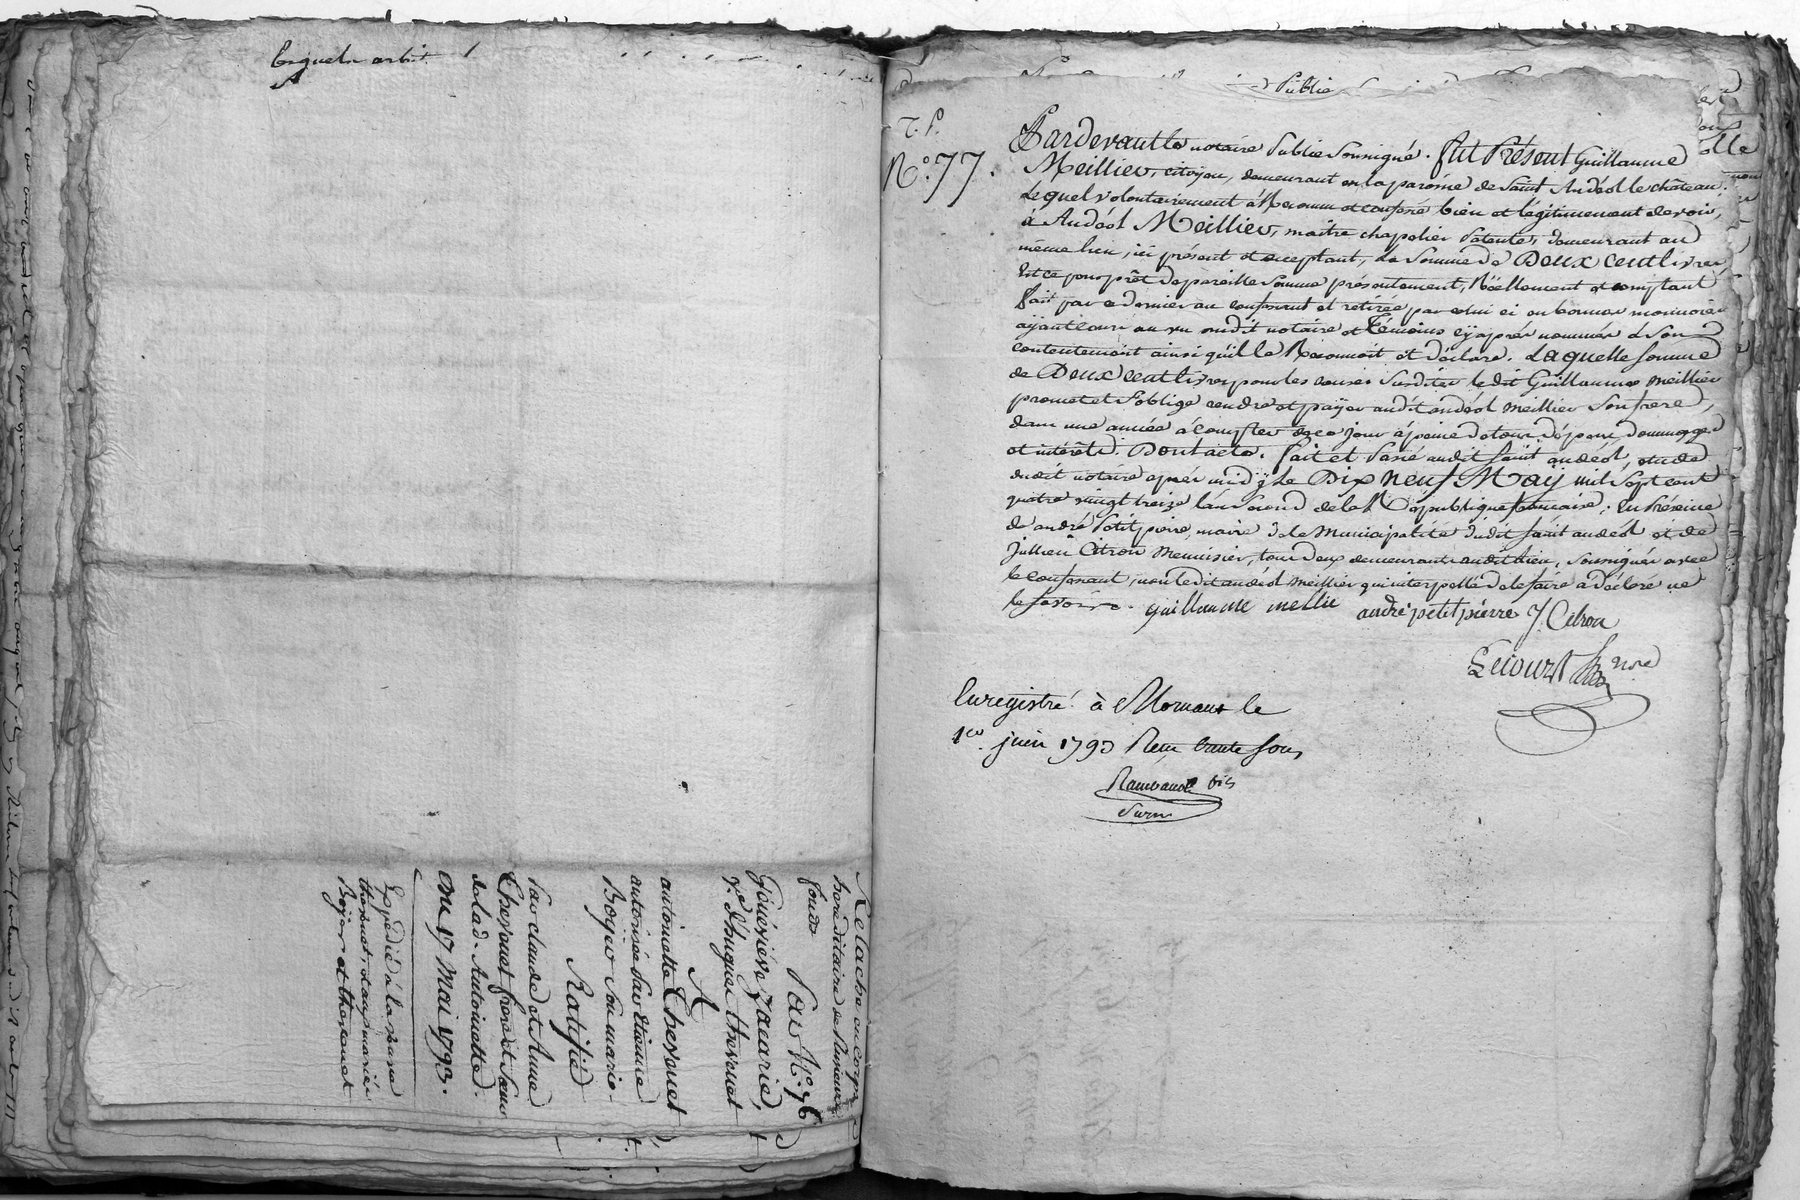 T. P.
N.° 77.
Pardevant le notaire Public Soussigné. fut Présent Guillaume
Meillier, citoyen, demeurant en la paroisse de Saint Andéol le château.
Lequel volontairement a Reconnu et confessé bien et légitimement devoir,
à Andéol Meillier, maitre chapelier Patenté, demeurant au
même lieu, ici présent et acceptant, La Somme de Deux cent livres
Est ce pour prêt de pareille Somme présentement, Réellement et comptant
fait par ce dernier au confessant et retirée par celui ci en bonnes monnoies
ayant cours au vu dudit notaire et témoins cy après nommés à Son
contentement ainsi qu'il le Reconnoit et déclare. Laquelle Somme
de Deux cent livres pour les causes Susdites ledit Guillaume Meillier
promet et S'oblige rendre et payer audit andéol Meillier Son frere,
dans une année à compter de ce jour à peine de tous dépens, dommages
et intérêts. Dont acte. fait et Passé audit Saint andéol, étude
dudit notaire après midy Le Dix neuf May mil Sept cent
quatre vingt treize l'an Second de la République francaise; En Présence
de andré Petitpierre, maire de la Municipalité dudit Saint andéol et de
Jullien Citron Menuisier, tous deux demeurants audit lieu, Soussignés avec
le confessant, non ledit andéol Meillier qui interpellé de le faire a déclaré ne
le Savoir. guillaume mellie andré petit pierre J Citron
Lecourt nore
Enregistré à Mornant le
1er juin 1793 Reçu trente Sous
Rambaud fils
Relache en corps
hereditaire de Plusieurs
fonds
Par N.° 76
Géneviéve Jacarie,
v.e d'hugues thevenet
A
antoinette Thevenet
autorisée Par Etienne
Boyer Son mario.
Ratifié
Par claude et Anne
Thevenet frere et Sœur
de lad. Antoinette.
Du 17 Mai 1793.
Expédié à la veuve
thevenet, et aux mariés
Boyer et thevenet